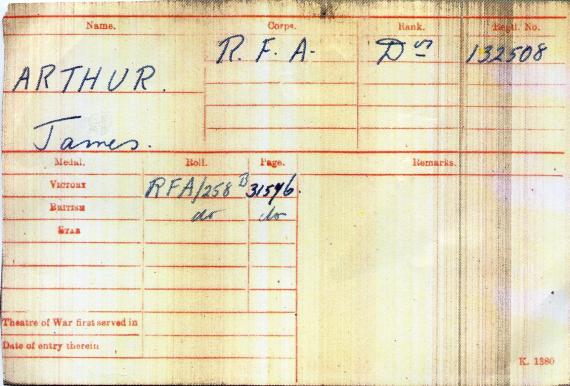 Name. Corps. Rank. Regtl. No.
ARTHUR. R. F. A. Dr 132508
James.
Medal. Roll. Page. Remarks.
VICTORY RFA/258 B 31546.
BRITISH do do
STAR
Theatre of War first served in
Date of entry therein
K. 1380